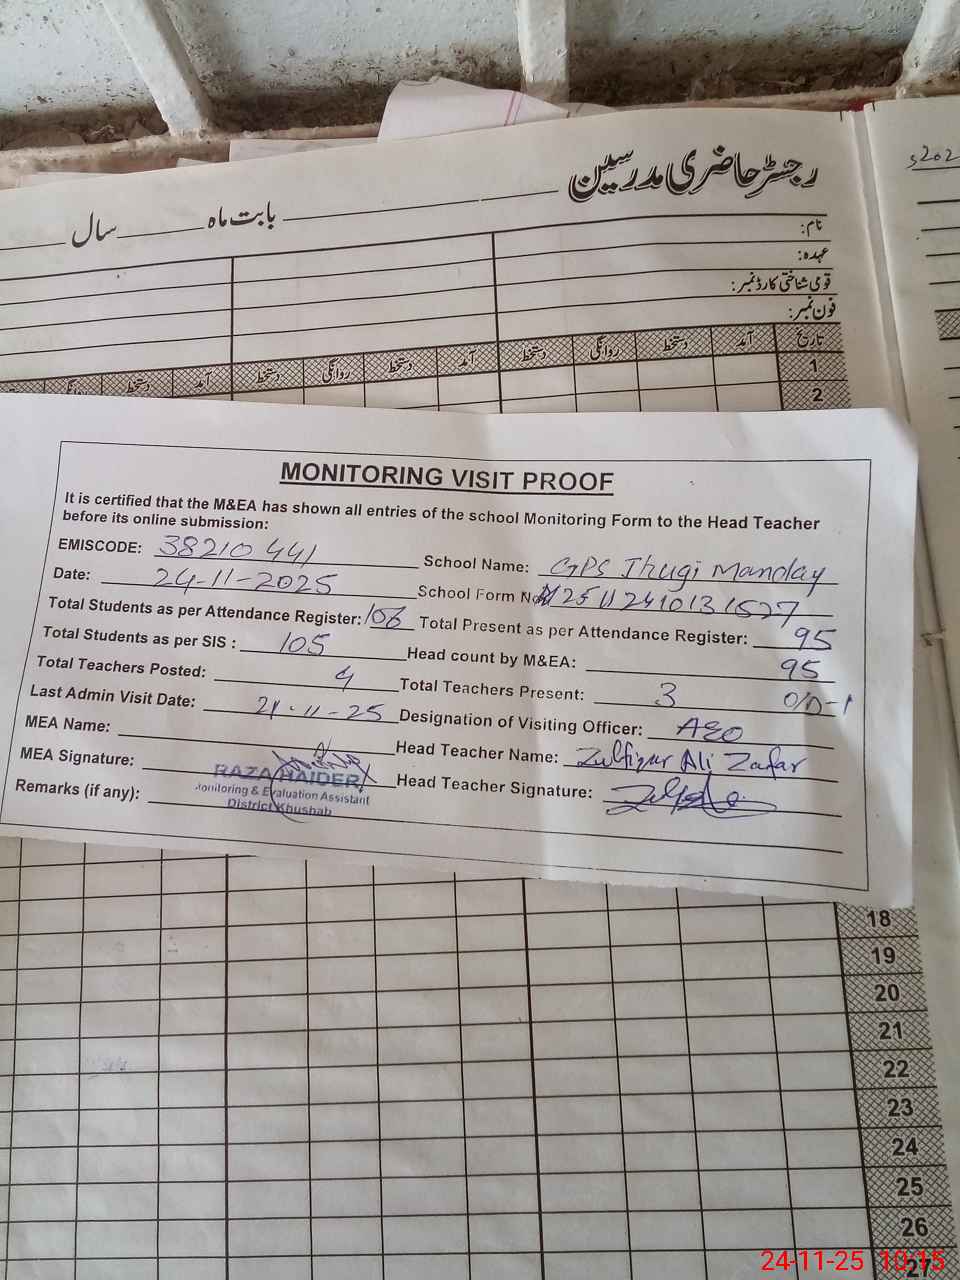 s202
رجسٹر حاضری مدرسین
بابت ماہ سال
نام:
عہدہ:
قومی شناختی کارڈ نمبر:
فون نمبر:
تاریخ آمد دستخط روانگی دستخط آمد دستخط روانگی دستخط آمد دستخط روانگی
1
2
MONITORING VISIT PROOF
It is certified that the M&EA has shown all entries of the school Monitoring Form to the Head Teacher
before its online submission:
EMISCODE: 38210441 School Name: GPS Jhugi Manday
Date: 24-11-2025 School Form No. 25112410131527
Total Students as per Attendance Register: 106 Total Present as per Attendance Register: 95
Total Students as per SIS : 105 Head count by M&EA: 95
Total Teachers Posted: 4 Total Teachers Present: 3 O/D-1
Last Admin Visit Date: 21-11-25 Designation of Visiting Officer: AEO
MEA Name: Head Teacher Name: Zulfiqar Ali Zafar
MEA Signature: Head Teacher Signature:
RAZA HAIDER
Monitoring & Evaluation Assistant
District Khushab
Remarks (if any):
18
19
20
21
22
23
24
25
26
27
24-11-25 10:15